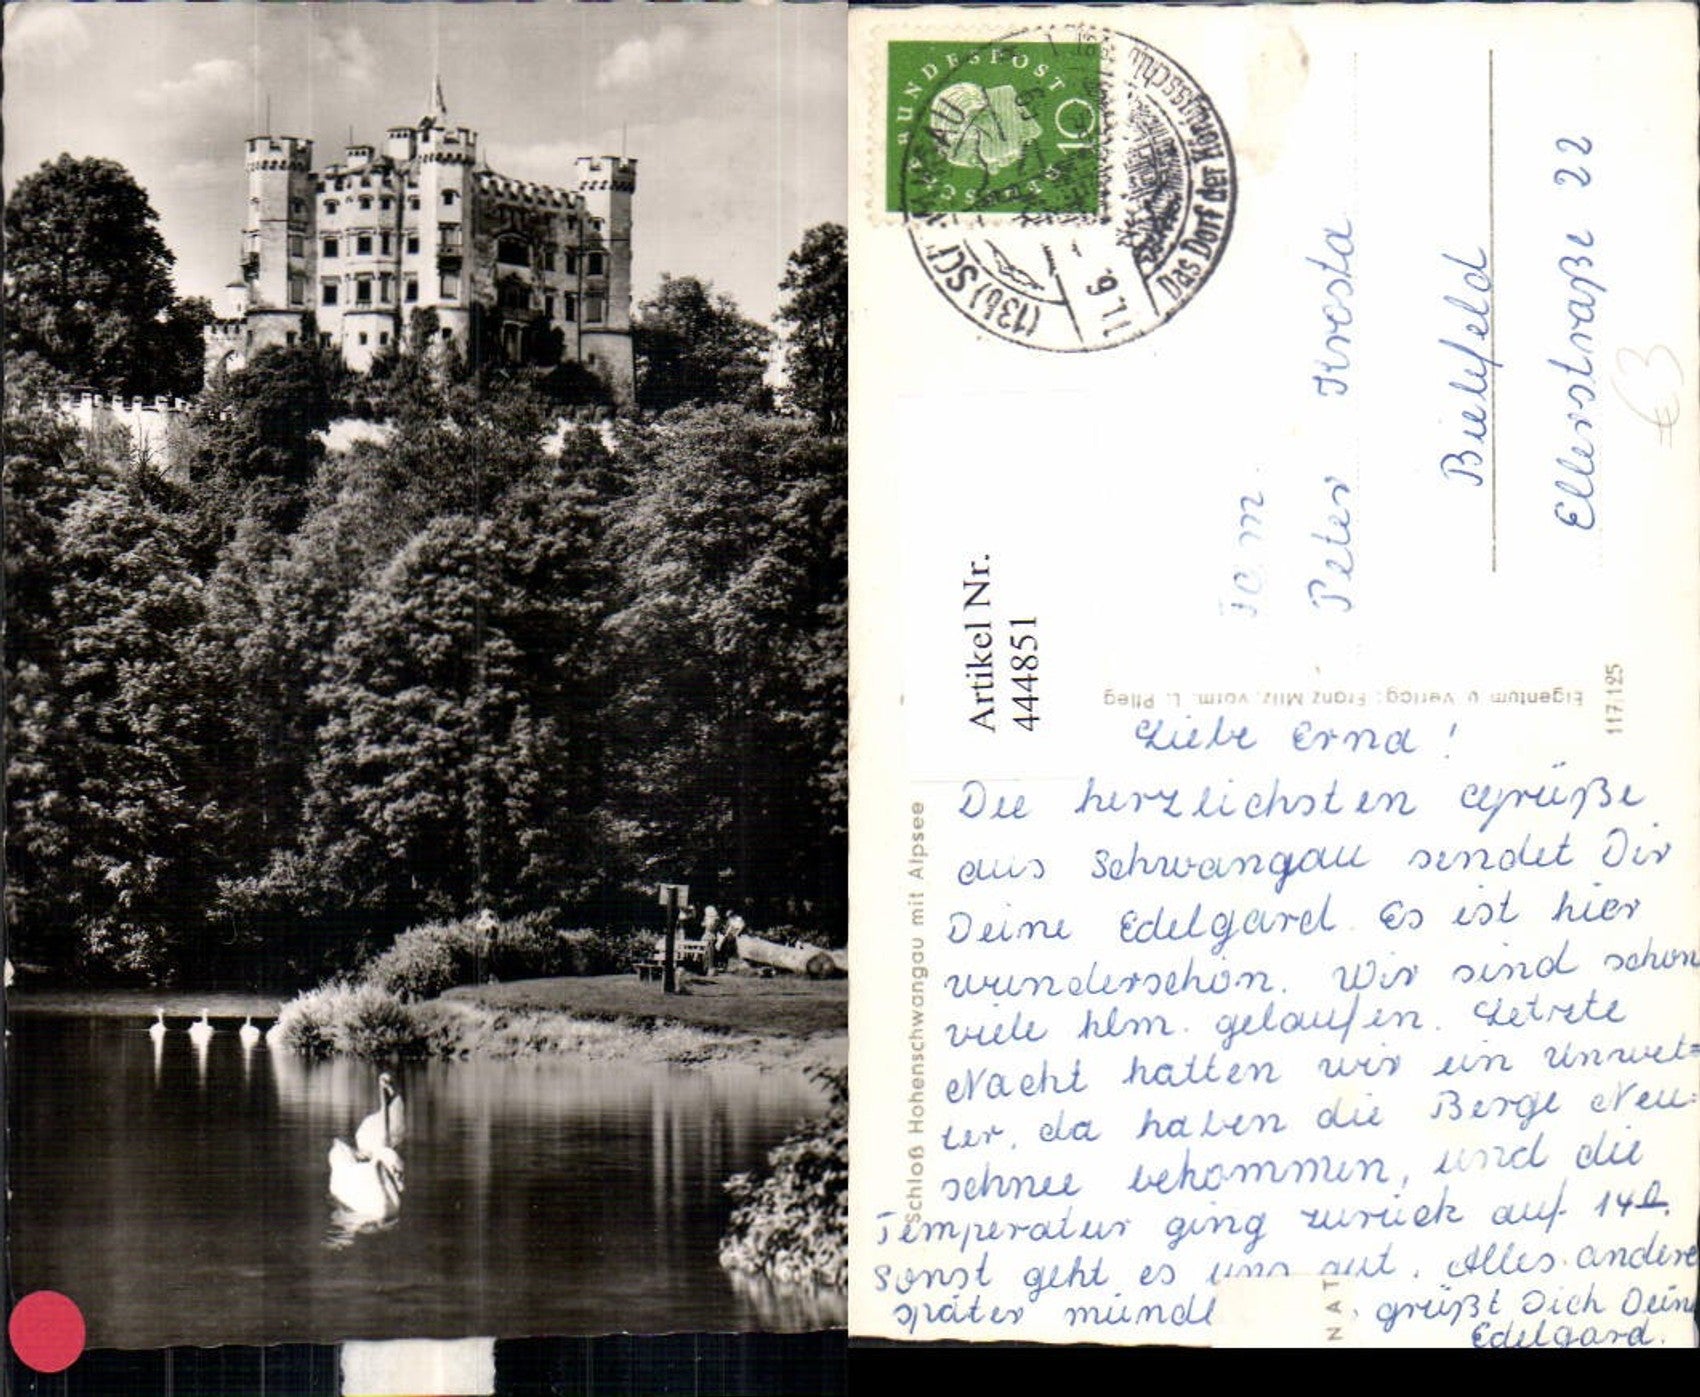 BUNDESPOST
10
(13b) SCHWANGAU
11. 6.
Das Dorf der Königsschlö
Fam.
Peter Kvesta
Bielefeld
Ellerstraße 22
€3
Artikel Nr.
444851
Eigentum u. Verlag: Franz Milz, vorm. L. Pfleg
117/125
Schloß Hohenschwangau mit Alpsee
Liebe Erna!
Die herzlichsten Grüße
aus Schwangau sendet Dir
Deine Edelgard. Es ist hier
wunderschön. Wir sind schon
viele klm. gelaufen. Letzte
Nacht hatten wir ein Unwet=
ter, da haben die Berge Neu=
schnee bekommen, und die
Temperatur ging zurück auf 14°.
Sonst geht es uns gut. Alles andere
später mündl
grüßt Dich Dein
Edelgard.
NAT